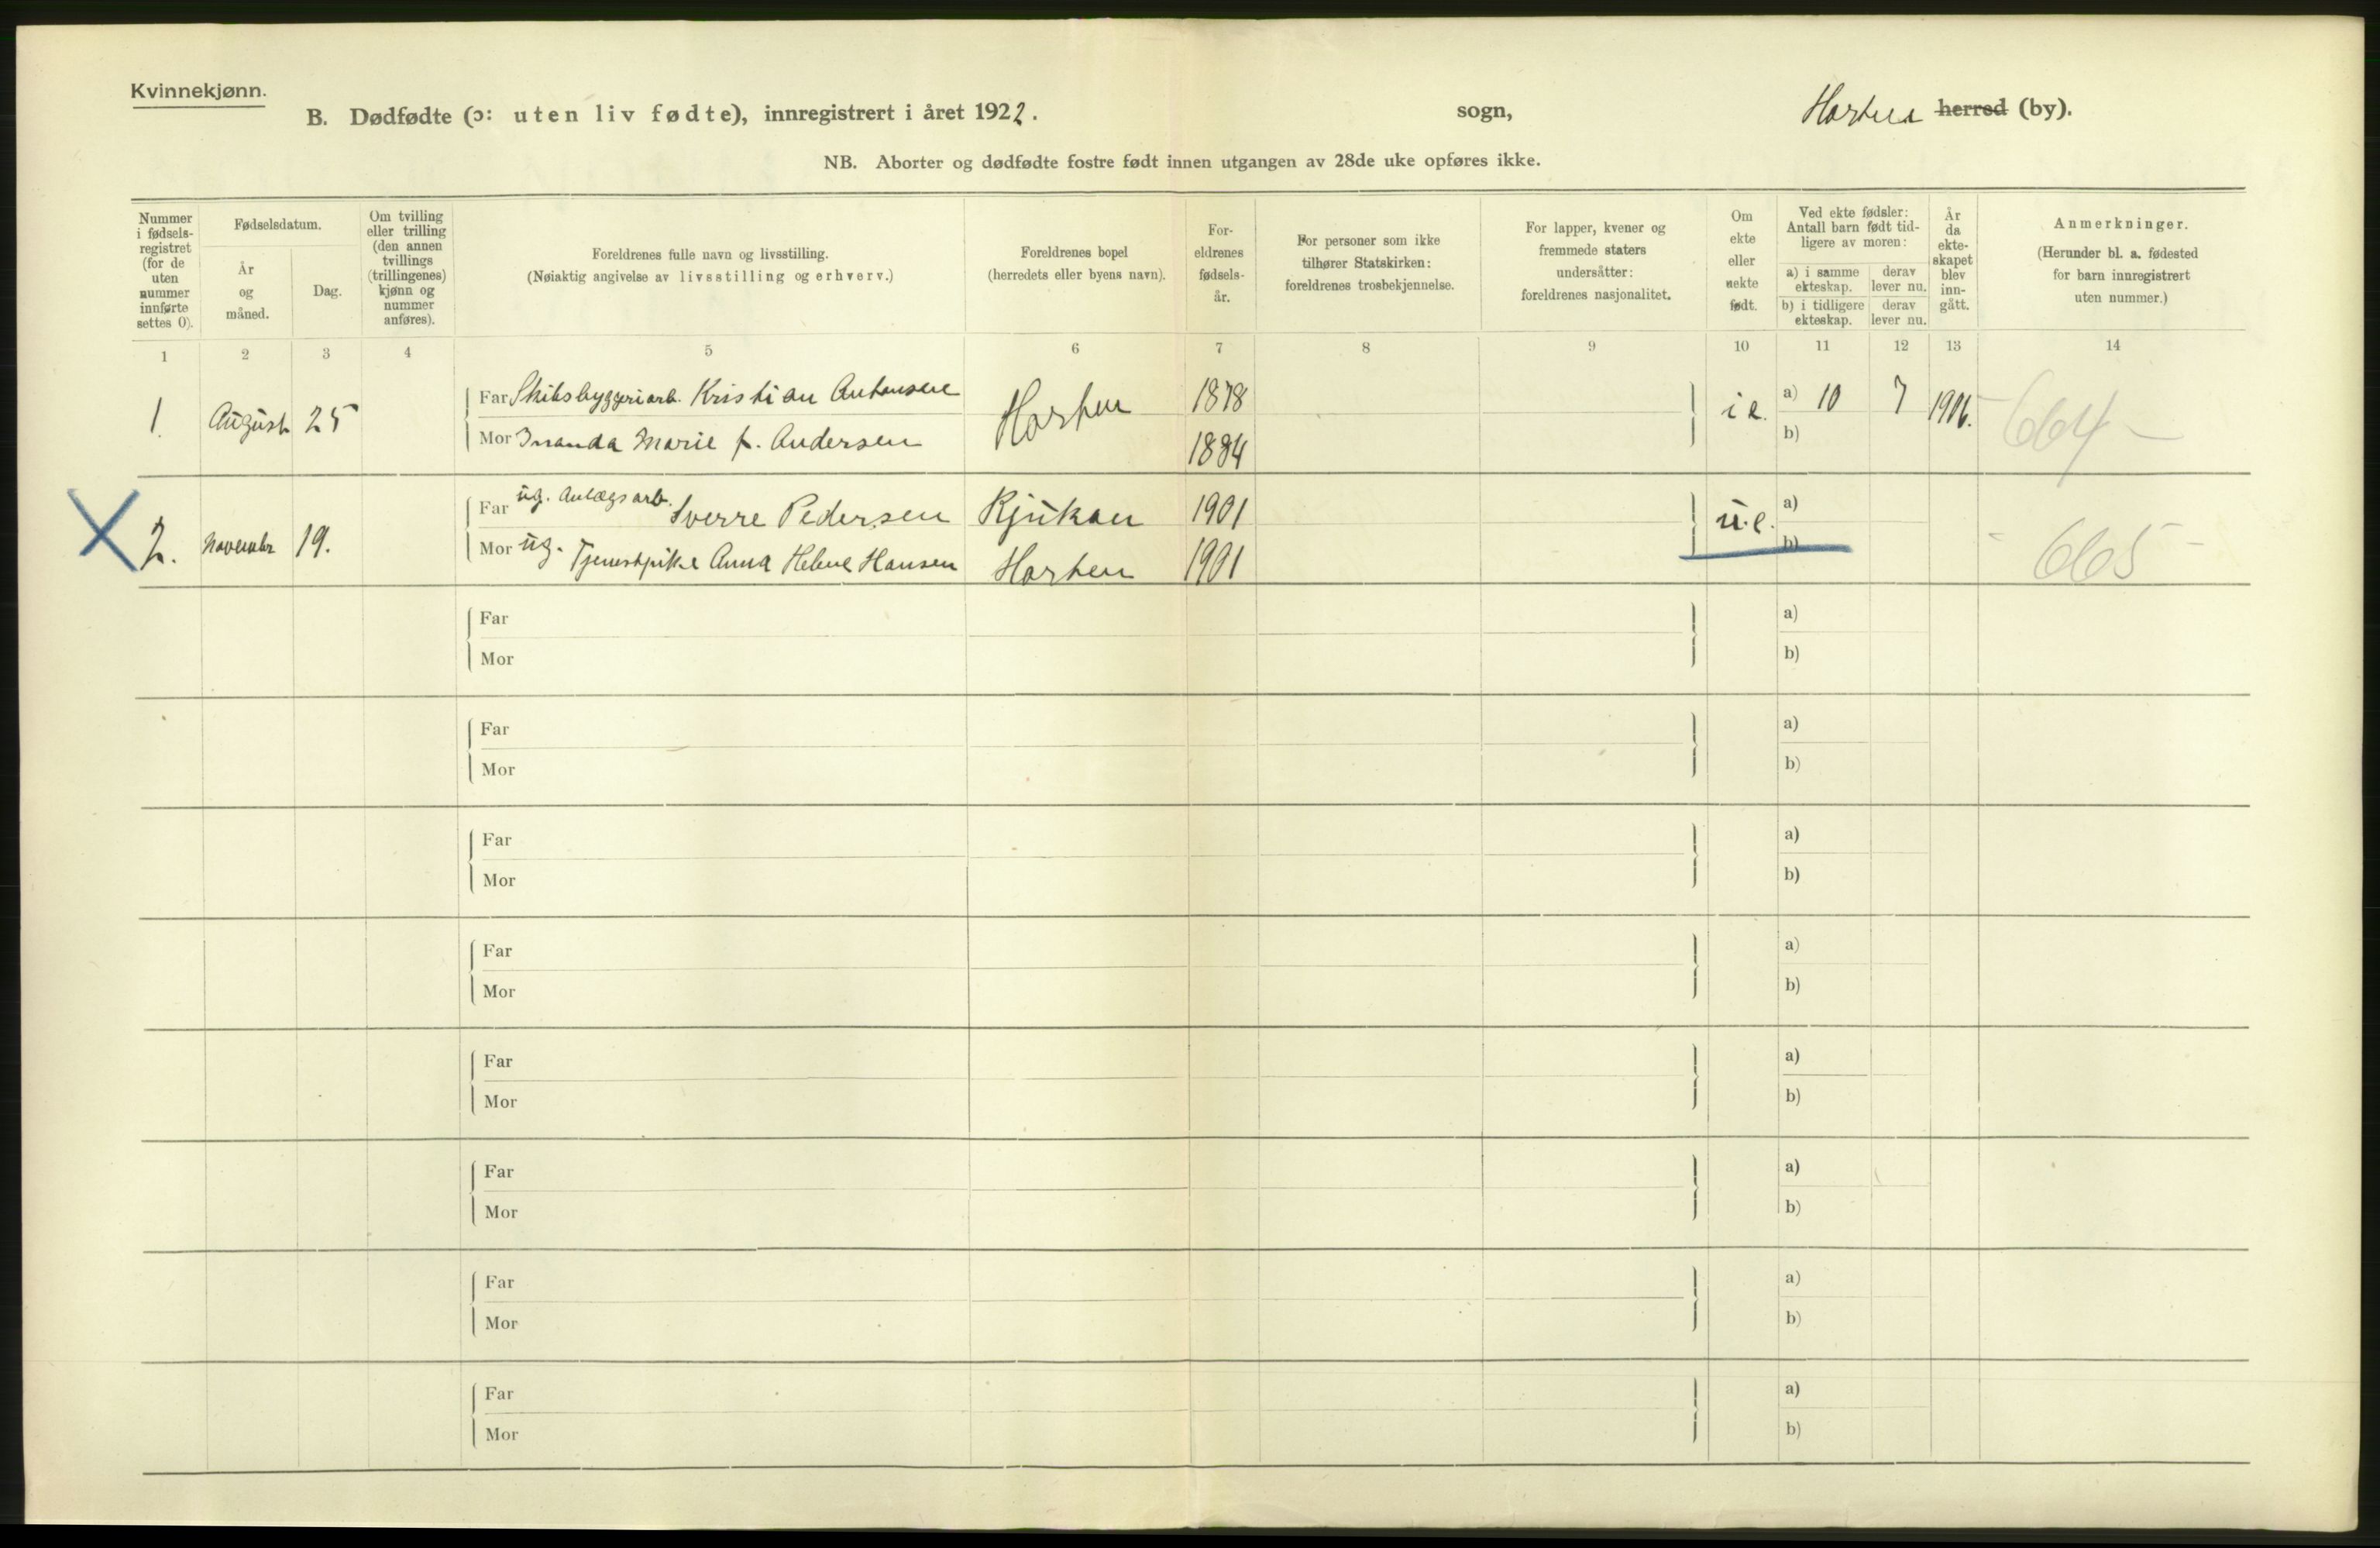 Kvinnekjønn.
B. Dødfødte (ɔ: uten liv fødte), innregistrert i året 1922. sogn, Horten herred (by).
NB. Aborter og dødfødte fostre født innen utgangen av 28de uke opføres ikke.
Nummer i fødsels-registret (for de uten nummer innførte settes 0).
Fødselsdatum.
År og måned.
Dag.
Om tvilling eller trilling (den annen tvillings (trillingenes) kjønn og nummer anføres).
Foreldrenes fulle navn og livsstilling.
(Nøiaktig angivelse av livsstilling og erhverv.)
Foreldrenes bopel
(herredets eller byens navn).
For-eldrenes fødsels-år.
For personer som ikke tilhører Statskirken: foreldrenes trosbekjennelse.
For lapper, kvener og fremmede staters undersåtter: foreldrenes nasjonalitet.
Om ekte eller uekte født.
Ved ekte fødsler: Antall barn født tid-ligere av moren:
a) i samme ekteskap.
derav lever nu.
b) i tidligere ekteskap.
derav lever nu.
År da ekte-skapet blev inn-gått.
Anmerkninger.
(Herunder bl. a. fødested for barn innregistrert uten nummer.)
1 2 3 4 5 6 7 8 9 10 11 12 13 14
1. August 25 Far Skibsbyggeriarb. Kristian Antonsen Horten 1878 i e. a) 10 7 1906. 664 –
Mor Marie f. Andersen 1884 b)
X 2. November 19. Far ug. Anlægsarb. Sverre Pedersen Rjukan 1901 u.e. a)
Mor ug. Tjenestpike Anna Helene Hansen Horten 1901 b) – 665 –
Far a)
Mor b)
Far a)
Mor b)
Far a)
Mor b)
Far a)
Mor b)
Far a)
Mor b)
Far a)
Mor b)
Far a)
Mor b)
Far a)
Mor b)